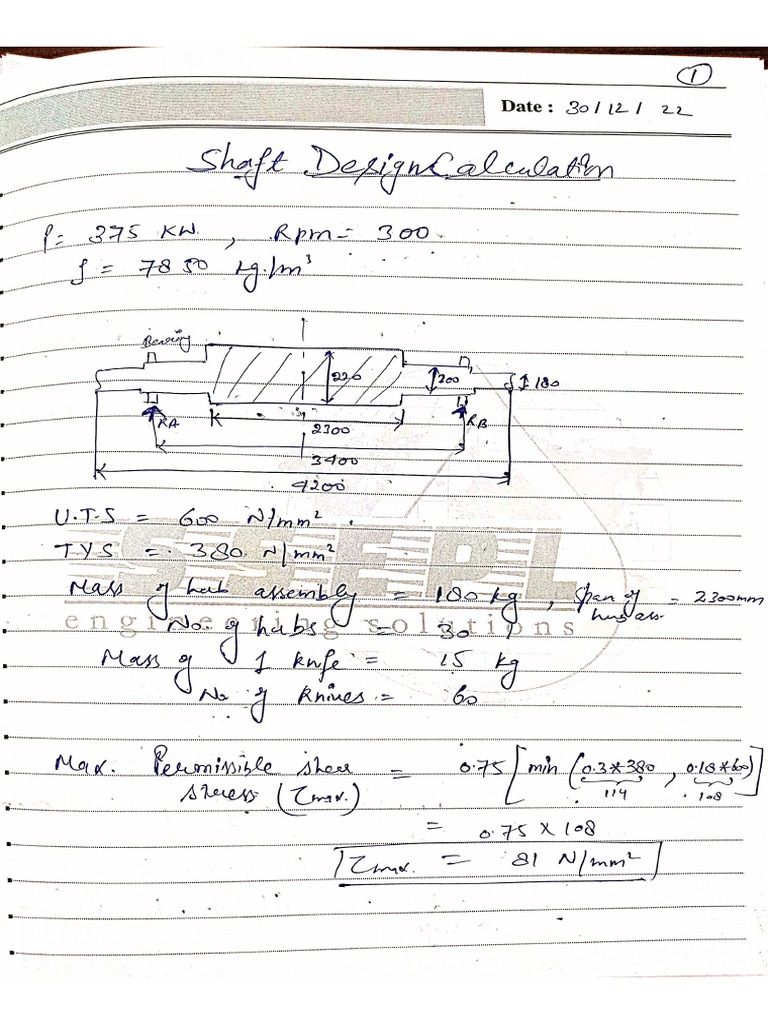 1
Date : 30/12/ 22
Shaft Design Calculation
P= 375 KW. , Rpm = 300
ρ = 7850 kg/m³
Bearing
220
200
180
RA
RB
2300
3400
4200
U.T.S = 600 N/mm².
T.Y.S = 380 N/mm²
Mass of hub assembly = 180 kg , Span of hub ass = 2300mm
No. of hubs = 30
Mass of 1 knife = 15 kg
No of knives = 60
SSEPL
engineering solutions
Max. Permissible shear stress (τmax.) = 0.75 [min (0.3*380, 0.18*600)]
114 108
= 0.75 × 108
τmax. = 81 N/mm²